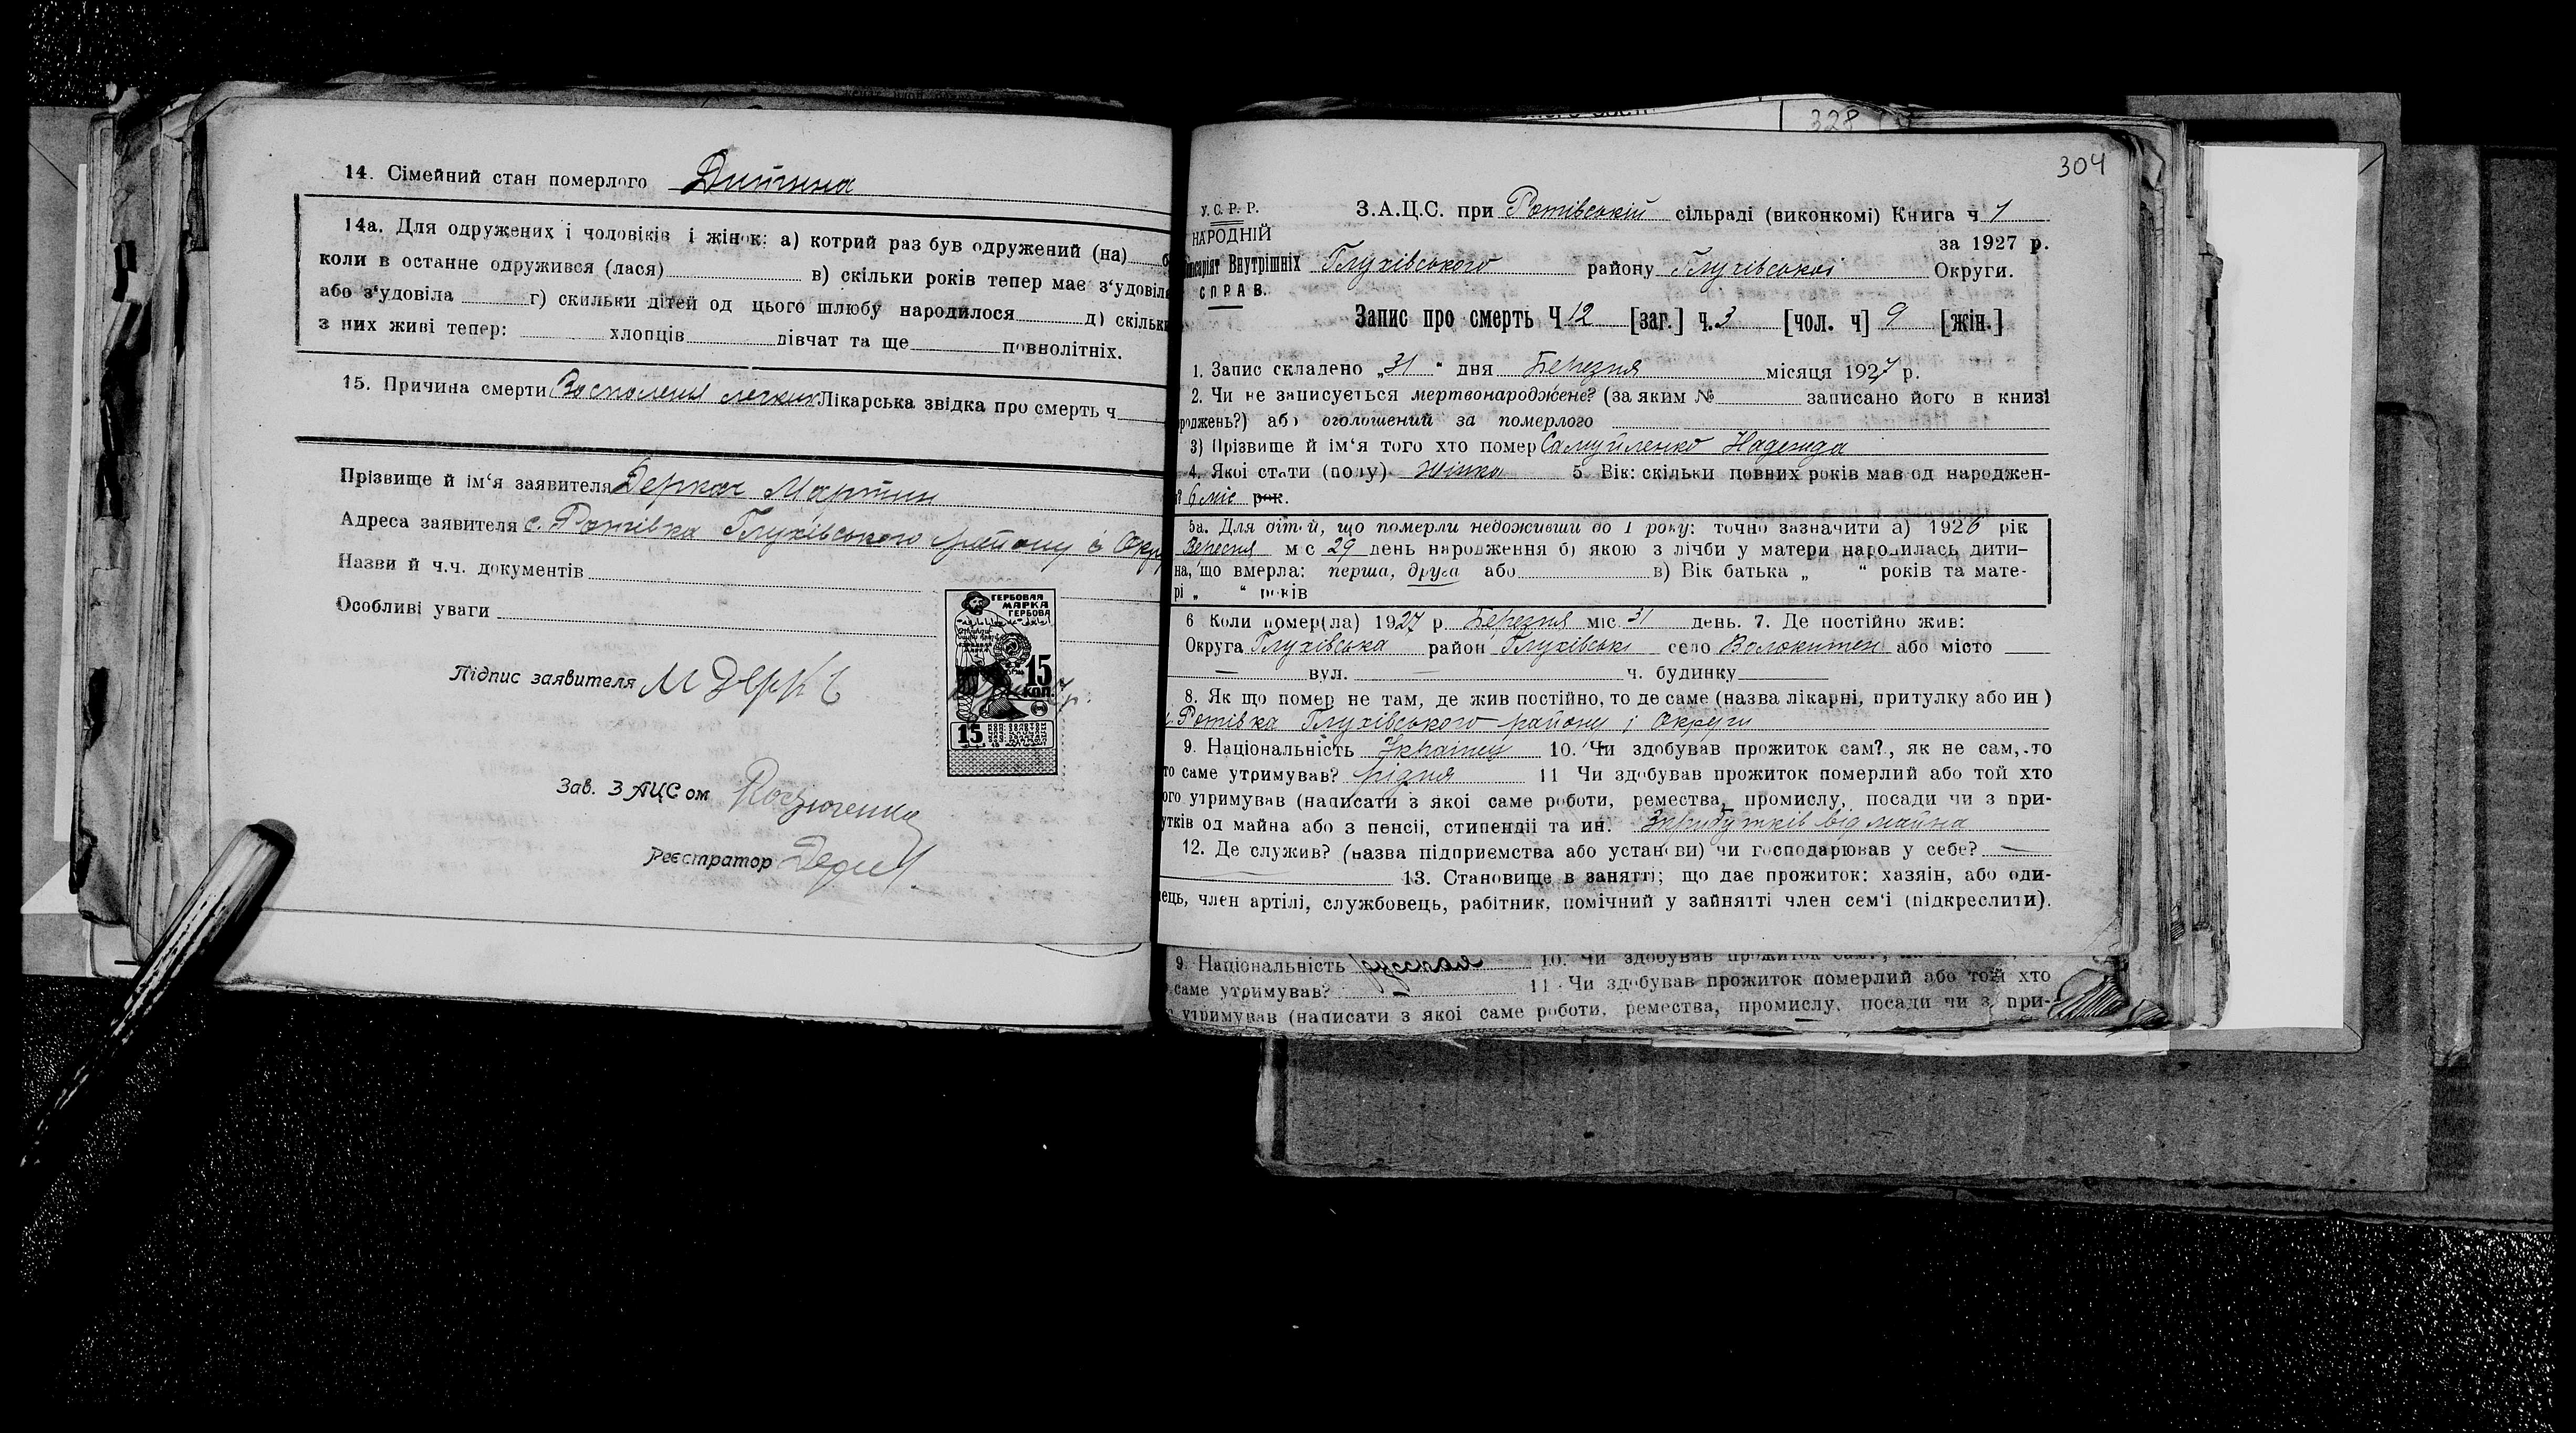 14. Сімейний стан померлого Дитина
14а. Для одружених і чоловіків і жінок: а) котрий раз був одружений (на)
коли в останне одружився (лася) в) скільки років тепер має з‘удовіл
або з‘удовіла г) скильки дітей од цього шлюбу народилося д) скільк
з них живі тепер: хлопців дівчат та ще повнолітніх.
15. Причина смерти Восполения легких Лікарська звідка про смерть ч
Прізвище й ім‘я заявителя Деркач Мартин
Адреса заявителя с. Ротівка Глухівського району і Окр
Назви й ч.ч. документів
Особливі уваги
ГЕРБОВАЯ
МАРКА
ГЕРБОВА
15
КОП.
15
Підпис заявителя М Дерк
Зав. ЗАЦСом
Реєстратор
328
304
У.С.Р.Р.
НАРОДНІЙ
Внутрішніх
СПРАВ.
З.А.Ц.С. при Ротівській сільраді (виконкомі) Книга ч 1
за 1927 р.
Глухівського району Глухівської Округи.
Запис про смерть Ч 12 [заг.] ч. 3 [чол. ч] 9 [жін.]
1. Запис складено „31“ дня Березня місяця 1927 р.
2. Чи не записується мертвонароджене? (за яким № записано його в книзі
роджень?) або оголошений за померлого
3) Прізвище й ім‘я того хто помер Самуйленко Надежда
4. Якої стати (полу) жінка 5. Вік: скільки повних років мав од народжен-
6 міс рок.
5а. Для дітей, що померли недоживши до 1 року: точно зазначити а) 1926 рік
Вересня міс 29 день народження б) якою з лічби у матери народилась дити-
на, що вмерла: перша, друга або в) Вік батька „ “ років та мате-
рі „ “ років
6 Коли помер(ла) 1927 р. Березня міс. 31 день. 7. Де постійно жив:
Округа Глухівська район Глухівські село Волокитен або місто
— вул. — ч. будинку
8. Як що помер не там, де жив постійно, то де саме (назва лікарні, притулку або ин)
Ротівка Глухівського району і Округи
9. Національність Українец 10. Чи здобував прожиток сам?, як не сам, то
то саме утримував? рідня 11 Чи здобував прожиток померлий або той хто
ого утримував (написати з якої саме роботи, ремества, промислу, посади чи з при-
утків од майна або з пенсії, стипендії та ин. Зприбутків від майна
12. Де служив? (назва підприємства або установи) чи господарював у себе? —
— 13. Становище в занятті; що дає прожиток: хазяін, або оди-
ець, член артілі, службовець, рабітник, помічний у зайнятті член сем‘ї (підкреслити).
9. Національність 10. Чи здобував прожиток сам?,
саме утримував? — 11 Чи здобував прожиток померлий або той хто
утримував (написати з якої саме роботи, ремества, промислу, посади чи з при-